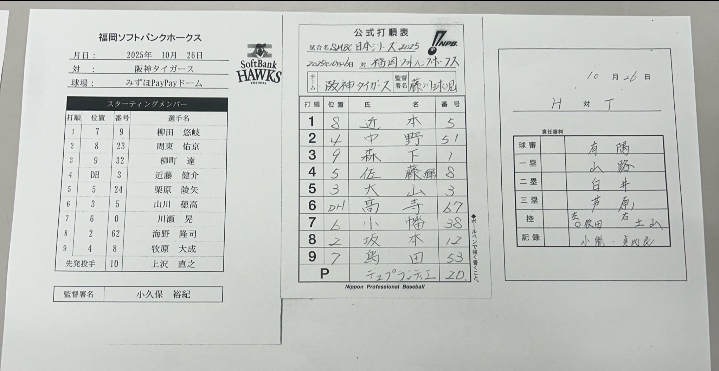 福岡ソフトバンクホークス
月日： 2025年 10月 26日
対： 阪神タイガース
球場： みずほPayPayドーム
SoftBank
HAWKS
スターティングメンバー
打順 位置 番号 選手名
1 7 9 柳田 悠岐
2 8 23 周東 佑京
3 9 32 柳町 達
4 DH 3 近藤 健介
5 5 24 栗原 陵矢
6 3 5 山川 穂高
7 6 0 川瀬 晃
8 2 62 海野 隆司
9 4 8 牧原 大成
先発投手 10 上沢 直之
監督署名 小久保 裕紀
公式打順表
試合名 SMBC日本シリーズ2025
NPB
2025年10月26日 対 福岡ソフトバンクホークス
チーム 阪神タイガース 監督署名 藤川球児
打順 位置 氏 名 番号
1 8 近本 5
2 4 中野 51
3 9 森下 1
4 5 佐藤輝 8
5 3 大山 3
6 DH 高寺 67
7 6 小幡 38
8 2 坂本 12
9 7 島田 53
P デュプランティエ 20
●ボールペンで強く書くこと。
Nippon Professional Baseball
10月26日
H 対 T
責任審判
球審 有隅
一塁 山路
二塁 白井
三塁 芦原
控 左 牧田 右 土山
記録